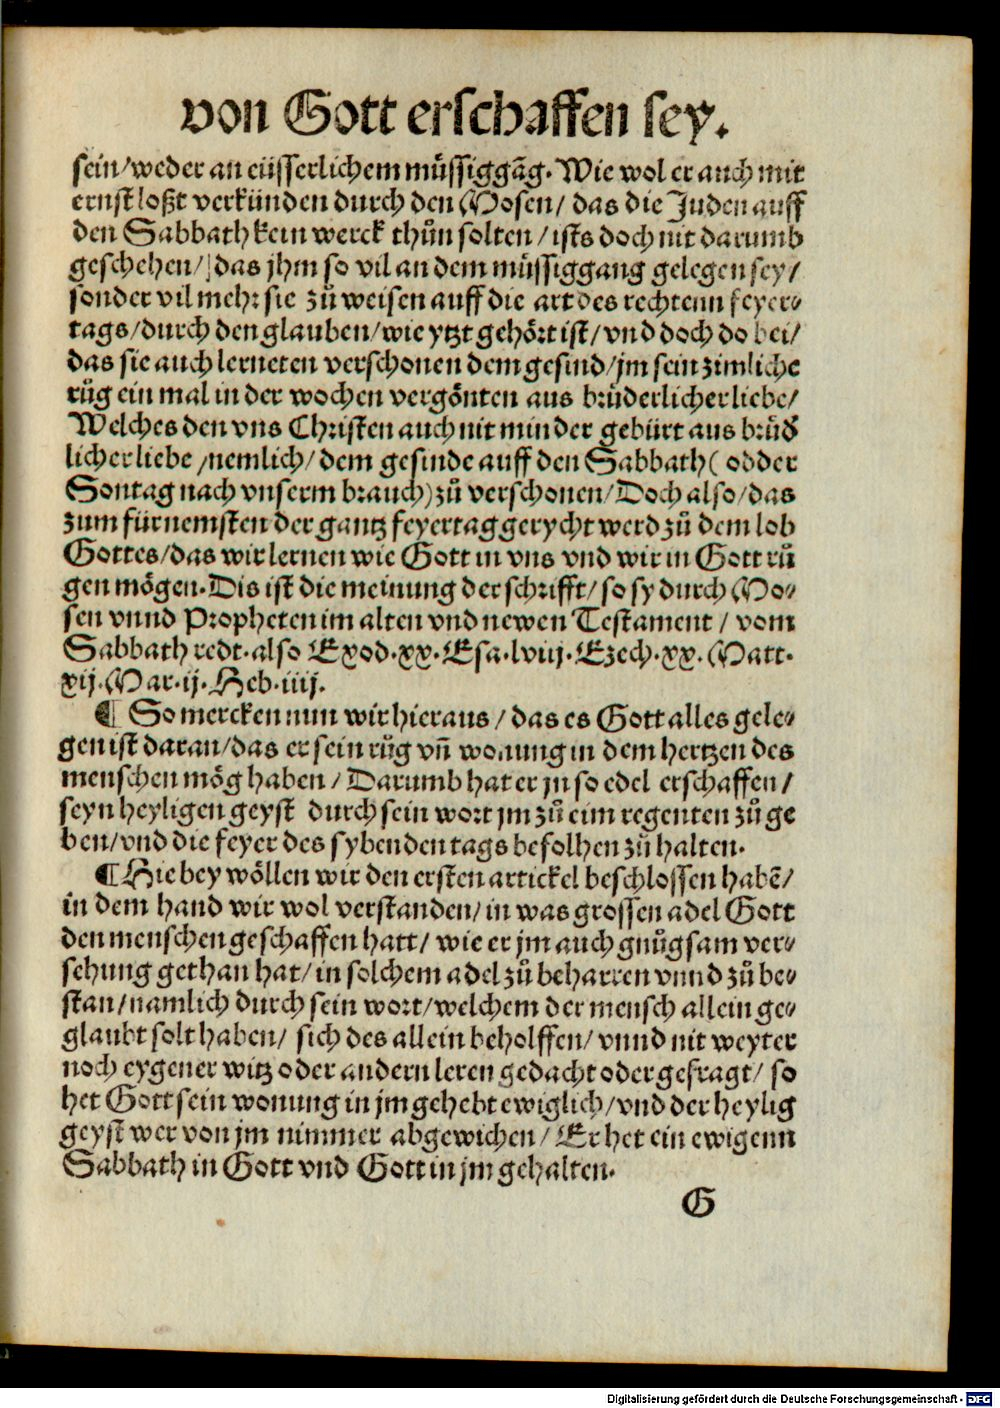 von Gott erschaffen sey.
sein/weder an eüsserlichem müssiggãg. Wie wol er auch mit
ernst loßt verkünden durch den Mosen/ das die Juden auff
den Sabbath kein werck thůn solten/ists doch nit darumb
geschehen/ das jhm so vil an dem müssiggang gelegen sey/
sonder vil mehr sie zů weisen auff die art des rechtenn feyer⸗
tags/durch den glauben/wie ytzt gehört ist/vnd doch do bei/
das sie auch lerneten verschonen dem gesind/jm sein zimliche
růg ein mal in der wochen vergönten aus brüderlicher liebe/
Welches den vns Christen auch nit minder gebürt aus brůd
licher liebe/nemlich/dem gesinde auff den Sabbath( odder
Sontag nach vnserm brauch)zů verschonen/Doch also/das
zum fürnemsten der gantz feyertag gerycht werd zů dem lob
Gottes/das wir lernen wie Gott in vns vnd wir in Gott rů
gen mögen. Dis ist die meinung der schrifft/so sy durch Mo⸗
sen vnnd Propheten im alten vnd newen Testament/ vom
Sabbath redt. also Exod.xx. Esa.lviij. Ezech.xx. Matt.
xij. Mar.ij. Heb.iiij.
¶ So mercken nun wir hieraus/das es Gott alles gele⸗
gen ist daran/das er sein růg vñ wonung in dem hertzen des
menschen mög haben/ Darumb hat er jn so edel erschaffen/
seyn heyligen geyst durch sein wort jm zů eim regenten zů ge
ben/vnd die feyer des sybenden tags befolhen zů halten.
¶ Hie bey wöllen wir den ersten artickel beschlossen habẽ/
in dem hand wir wol verstanden/in was grossen adel Gott
den menschen geschaffen hatt/ wie er jm auch gnůgsam ver⸗
sehung gethan hat/in solchem adel zů beharren vnnd zů be⸗
stan/namlich durch sein wort/welchem der mensch allein ge⸗
glaubt solt haben/ sich des allein beholffen/ vnnd nit weyter
noch eygener witz oder andern leren gedacht oder gefragt/ so
het Gott sein wonung in jm gehebt ewiglich/vnd der heylig
geyst wer von jm nimmer abgewichen/ Er het ein ewigenn
Sabbath in Gott vnd Gott in jm gehalten.
G
Digitalisierung gefördert durch die Deutsche Forschungsgemeinschaft - DFG